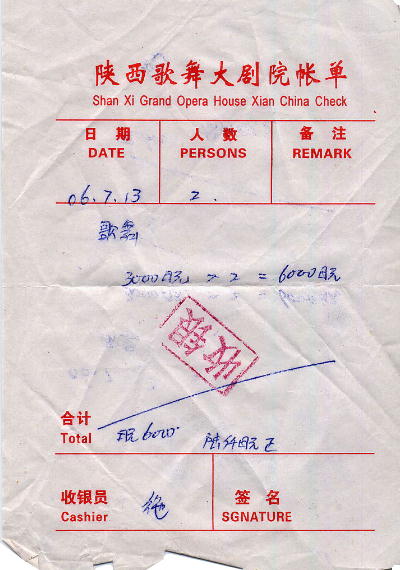 陕西歌舞大剧院帐单
Shan Xi Grand Opera House Xian China Check
日期 人数 备注
DATE PERSONS REMARK
06.7.13 2.
歌舞
3000日元 × 2 = 6000日元
收银
合计
Total 现6000. 陆仟日元正
收银员 签名
Cashier SGNATURE